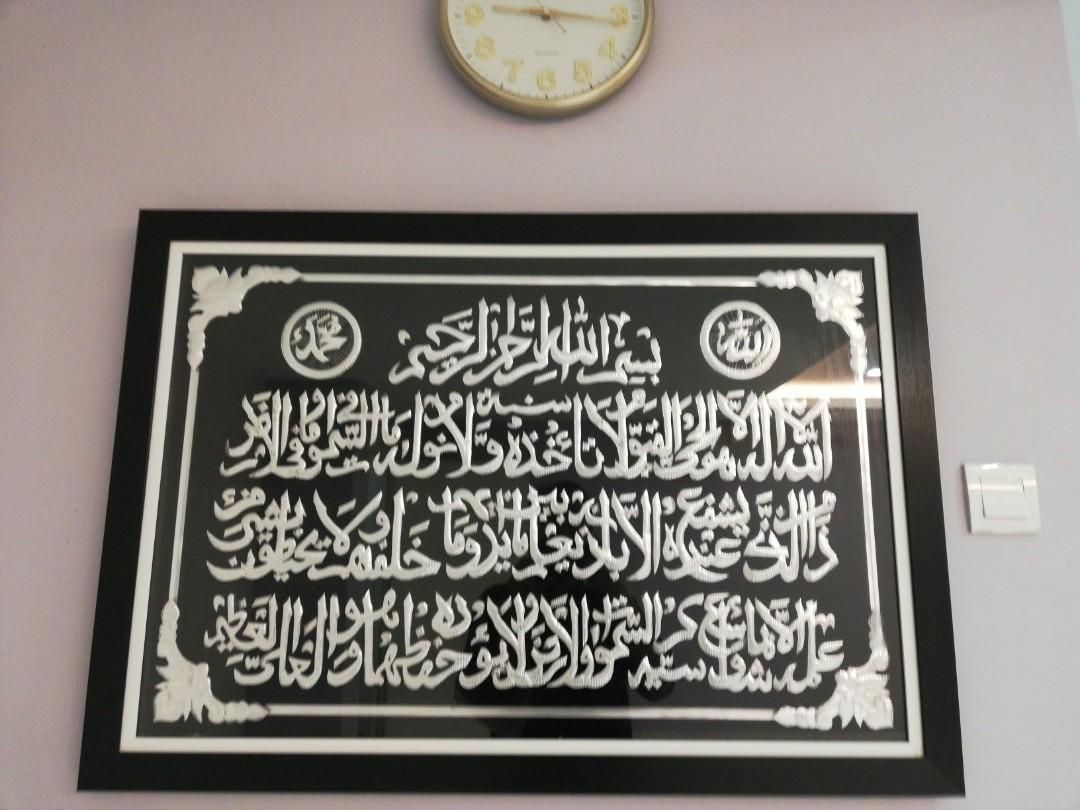 9 3
8 4
7 6 5
الله
بسم الله الرحمن الرحيم
محمد
الله لا اله الا هو الحي القيوم لا تأخذه سنة ولا نوم له ما في السموات وما في الارض
من ذا الذي يشفع عنده الا باذنه يعلم ما بين ايديهم وما خلفهم ولا يحيطون بشيء من
علمه الا بما شاء وسع كرسيه السموات والارض ولا يؤده حفظهما وهو العلي العظيم